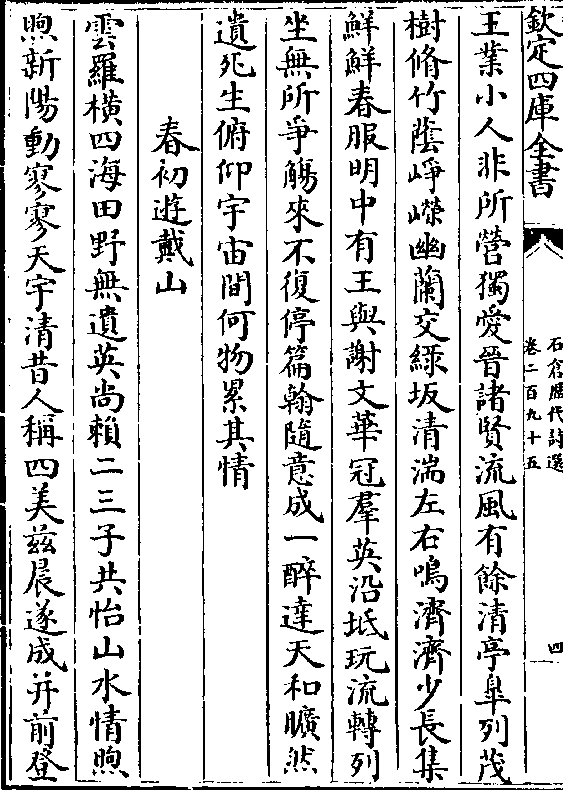 欽定四庫全書
石倉歷代詩選
卷二百九十五
四
王業小人非所營獨愛晉諸賢流風有餘清亭臯列茂
樹脩竹蔭崢嶸幽蘭交緑坂清湍左右鳴濟濟少長集
鮮鮮春服明中有王與謝文華冠羣英沿坻玩流轉列
坐無所爭觴來不復停篇翰隨意成一醉達天和曠然
遺死生俯仰宇宙間何物累其情
春初遊戴山
雲羅橫四海田野無遺英尚賴二三子共怡山水情煦
煦新陽動寥寥天宇清昔人稱四美兹晨遂成并前登